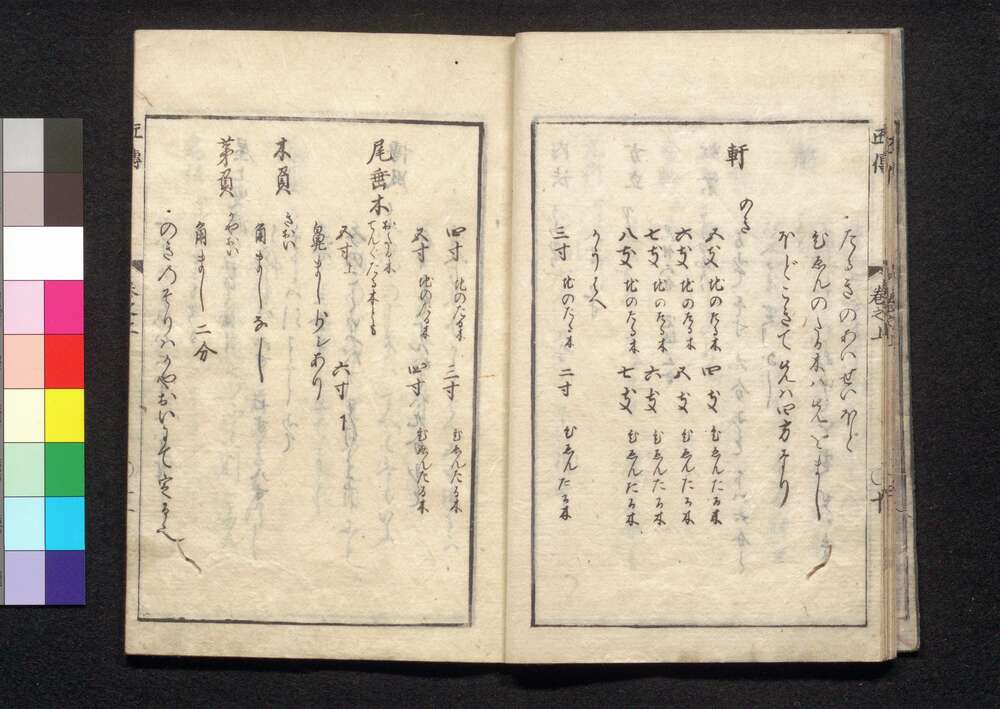 匠傳
巻之上
十
・たるきのあいせいほと
ひゑんのたる木ハ先をまし
ほどこきて先ハ四方そり
軒
のき
五支 地のたる木 四支 ひゑんたる木
六支 地のたる木 五支 ひゑんたる木
七支 地のたる木 六支 ひゑんたる木
八支 地のたる木 七支 ひゑんたる木
三寸 地のたる木 二寸 ひゑんたる木
四寸 地のたる木 三寸 ひゑんたる木
五寸 地のたる木 四寸 ひゑんたる木
尾垂木
おたる木
てんぐたる木とも
五寸上 六寸下
鼻まし少シあり
木負
きおい
角ましなし
茅負
かやおい
角まし 二分
・のきのそりハかやおいにて定るべし
匠傳